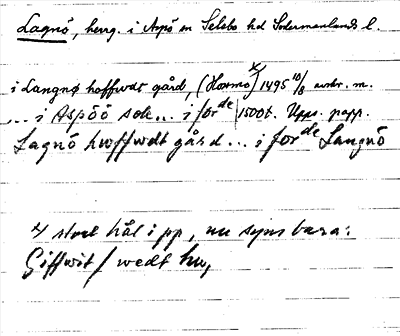 Lagnö, herrg. i Aspö sn Selebo hd Södermanlands l.
i Langnø hoffwdt gård, (Hormo x) 1495 10/8 avskr. m.
... i Aspöö sokn... i för de | 1500t. Upps. papp.
Lagnö hwffwdt gård ... i för de Langnö
x/ stort hål i pp, nu syns bara:
Giffwit / wedt hu,